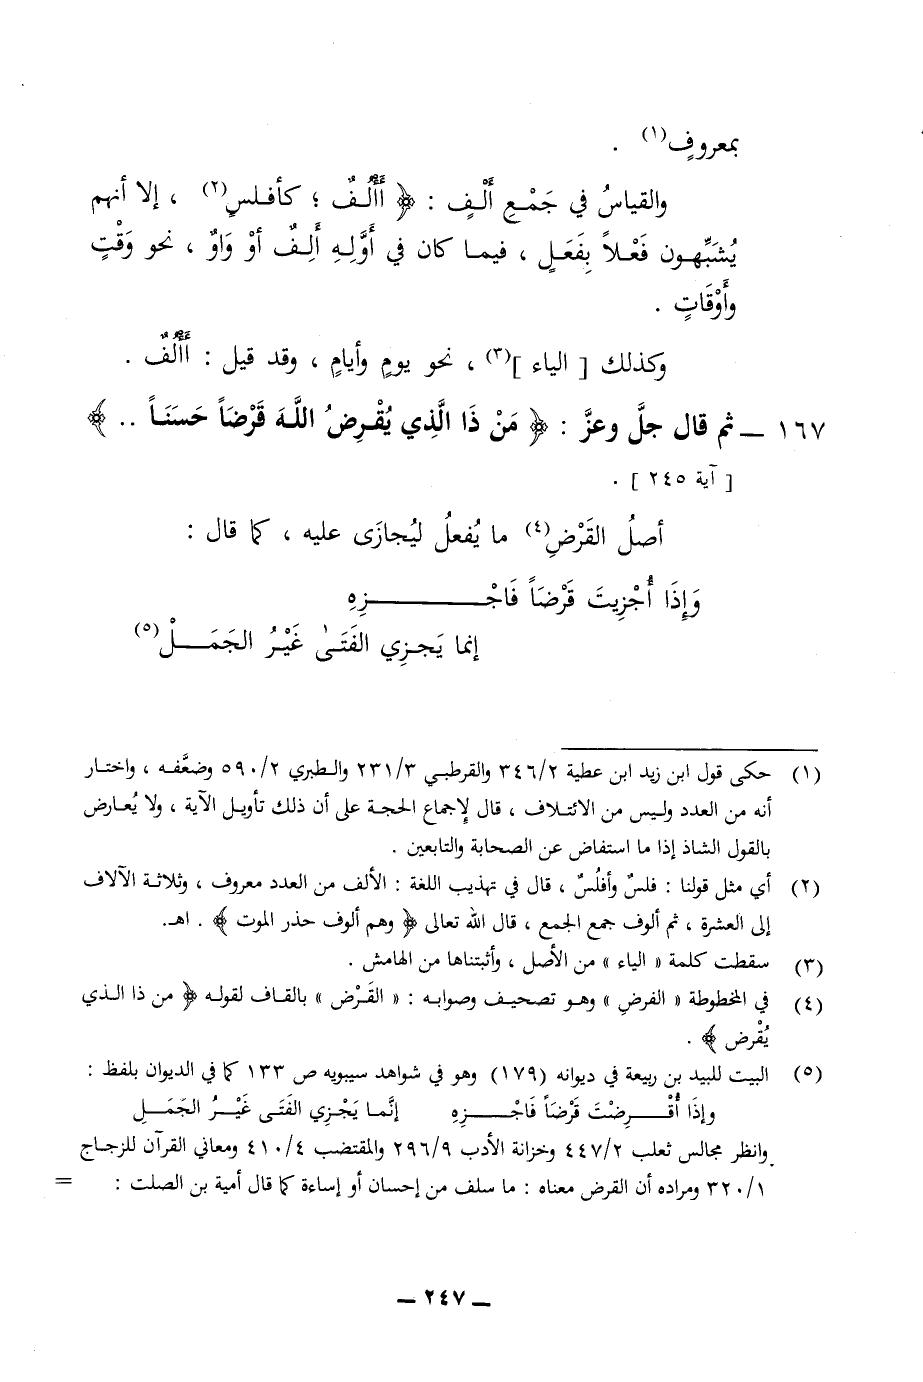 بمعروفٍ(١) .
والقياسُ في جَمْعِ أَلْفٍ : ﴿ أَأْلُفٌ ؛ كأفلسٍ(٢) ، إلا أنهم
يُشَبِّهون فَعْلاً بِفَعَلٍ ، فيما كان في أَوَّلِهِ أَلِفٌ أوْ وَاوٌ ، نحو وَقْتٍ
وأَوْقَاتٍ .
وكذلك [ الياء ](٣) ، نحو يومٍ وأيامٍ ، وقد قيل : أَأْلُفٌ .
١٦٧ ــ ثم قال جلَّ وعزَّ : ﴿ مَنْ ذَا الَّذِي يُقْرِضُ اللَّهَ قَرْضَاً حَسَنَاً .. ﴾
[ آية ٢٤٥ ] .
أصلُ القَرْضِ(٤) ما يُفعلُ ليُجازَى عليه ، كما قال :
وَإِذَا أُجْزِيتَ قَرْضَاً فَاجْـــــــزِهِ
إنما يَجزِي الفَتَىٰ غَيْرُ الجَمَـــلْ(٥)
(١) حكى قول ابن زيد ابن عطية ٣٤٦/٢ والقرطبي ٢٣١/٣ والطبري ٥٩٠/٢ وضعَّفه ، واختار
أنه من العدد وليس من الائتلاف ، قال لإجماع الحجة على أن ذلك تأويل الآية ، ولا يُعارض
بالقول الشاذ إذا ما استفاض عن الصحابة والتابعين .
(٢) أي مثل قولنا : فلسٌ وأفلُسٌ ، قال في تهذيب اللغة : الألف من العدد معروف ، وثلاثة الآلاف
إلى العشرة ، ثم ألوف جمع الجمع ، قال الله تعالى ﴿ وهم ألوف حذر الموت ﴾ . اهـ.
(٣) سقطت كلمة « الياء » من الأصل ، وأثبتناها من الهامش .
(٤) في المخطوطة « الفرضِ » وهو تصحيف وصوابه : « القَرْض » بالقاف لقوله ﴿ من ذا الذي
يُقْرض ﴾ .
(٥) البيت للبيد بن ربيعة في ديوانه (١٧٩) وهو في شواهد سيبويه ص ١٣٣ كما في الديوان بلفظ :
وإذَا أُقْـــرِضْتَ قَرْضَاً فَاجْـــزِهِ إنَّما يَجْزِي الفَتَى غَيْـرُ الجَمَـلِ
وانظر مجالس ثعلب ٤٤٧/٢ وخزانة الأدب ٢٩٦/٩ والمقتضب ٤١٠/٤ ومعاني القرآن للزجاج
٣٢٠/١ ومراده أن القرض معناه : ما سلف من إحسان أو إساءة كما قال أمية بن الصلت : =
ــ ٢٤٧ ــ